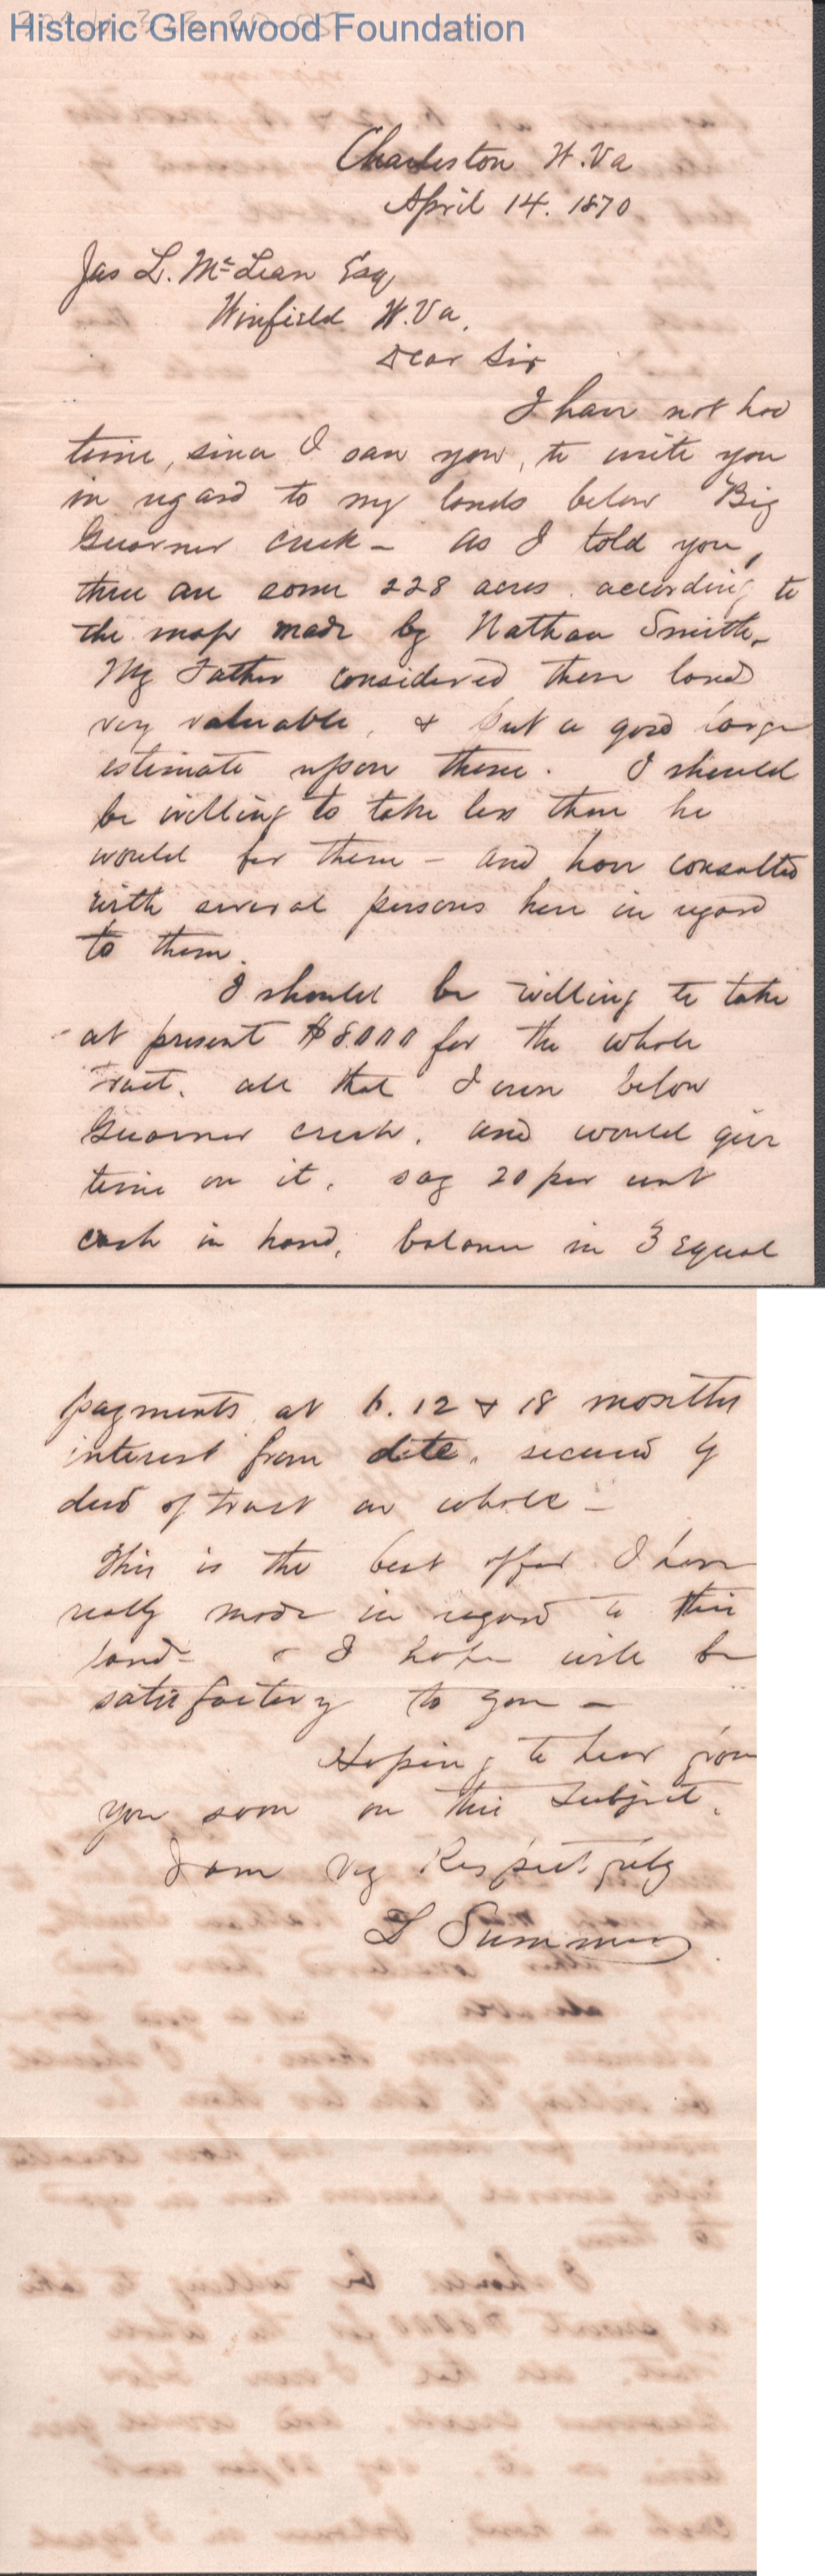 Historic Glenwood Foundation
Charleston W. Va
April 14. 1870
Jas L. McLean Esq
Winfield W. Va.
Dear Sir
I have not had
time, since I saw you, to write you
in regard to my lands below Big
Guarner creek - As I told you,
there are some 228 acres according to
the map made by Nathan Smith.
My Father considered these lands
very valuable, & put a good large
estimate upon them. I should
be willing to take less than he
would for them - and have consulted
with several persons here in regard
to them.
I should be willing to take
at present $8000 for the whole
tract. all that I own below
Guarner creek. and would give
time on it, say 20 per cent
cash in hand, balance in 3 equal
payments at 6. 12 & 18 months
interest from date. secured by
deed of trust on whole -
This is the best offer I have
really made in regard to this
land - & I hope will be
satisfactory to you -
Hoping to hear from
you soon on this subject.
I am Vy Respectfully
L Summers